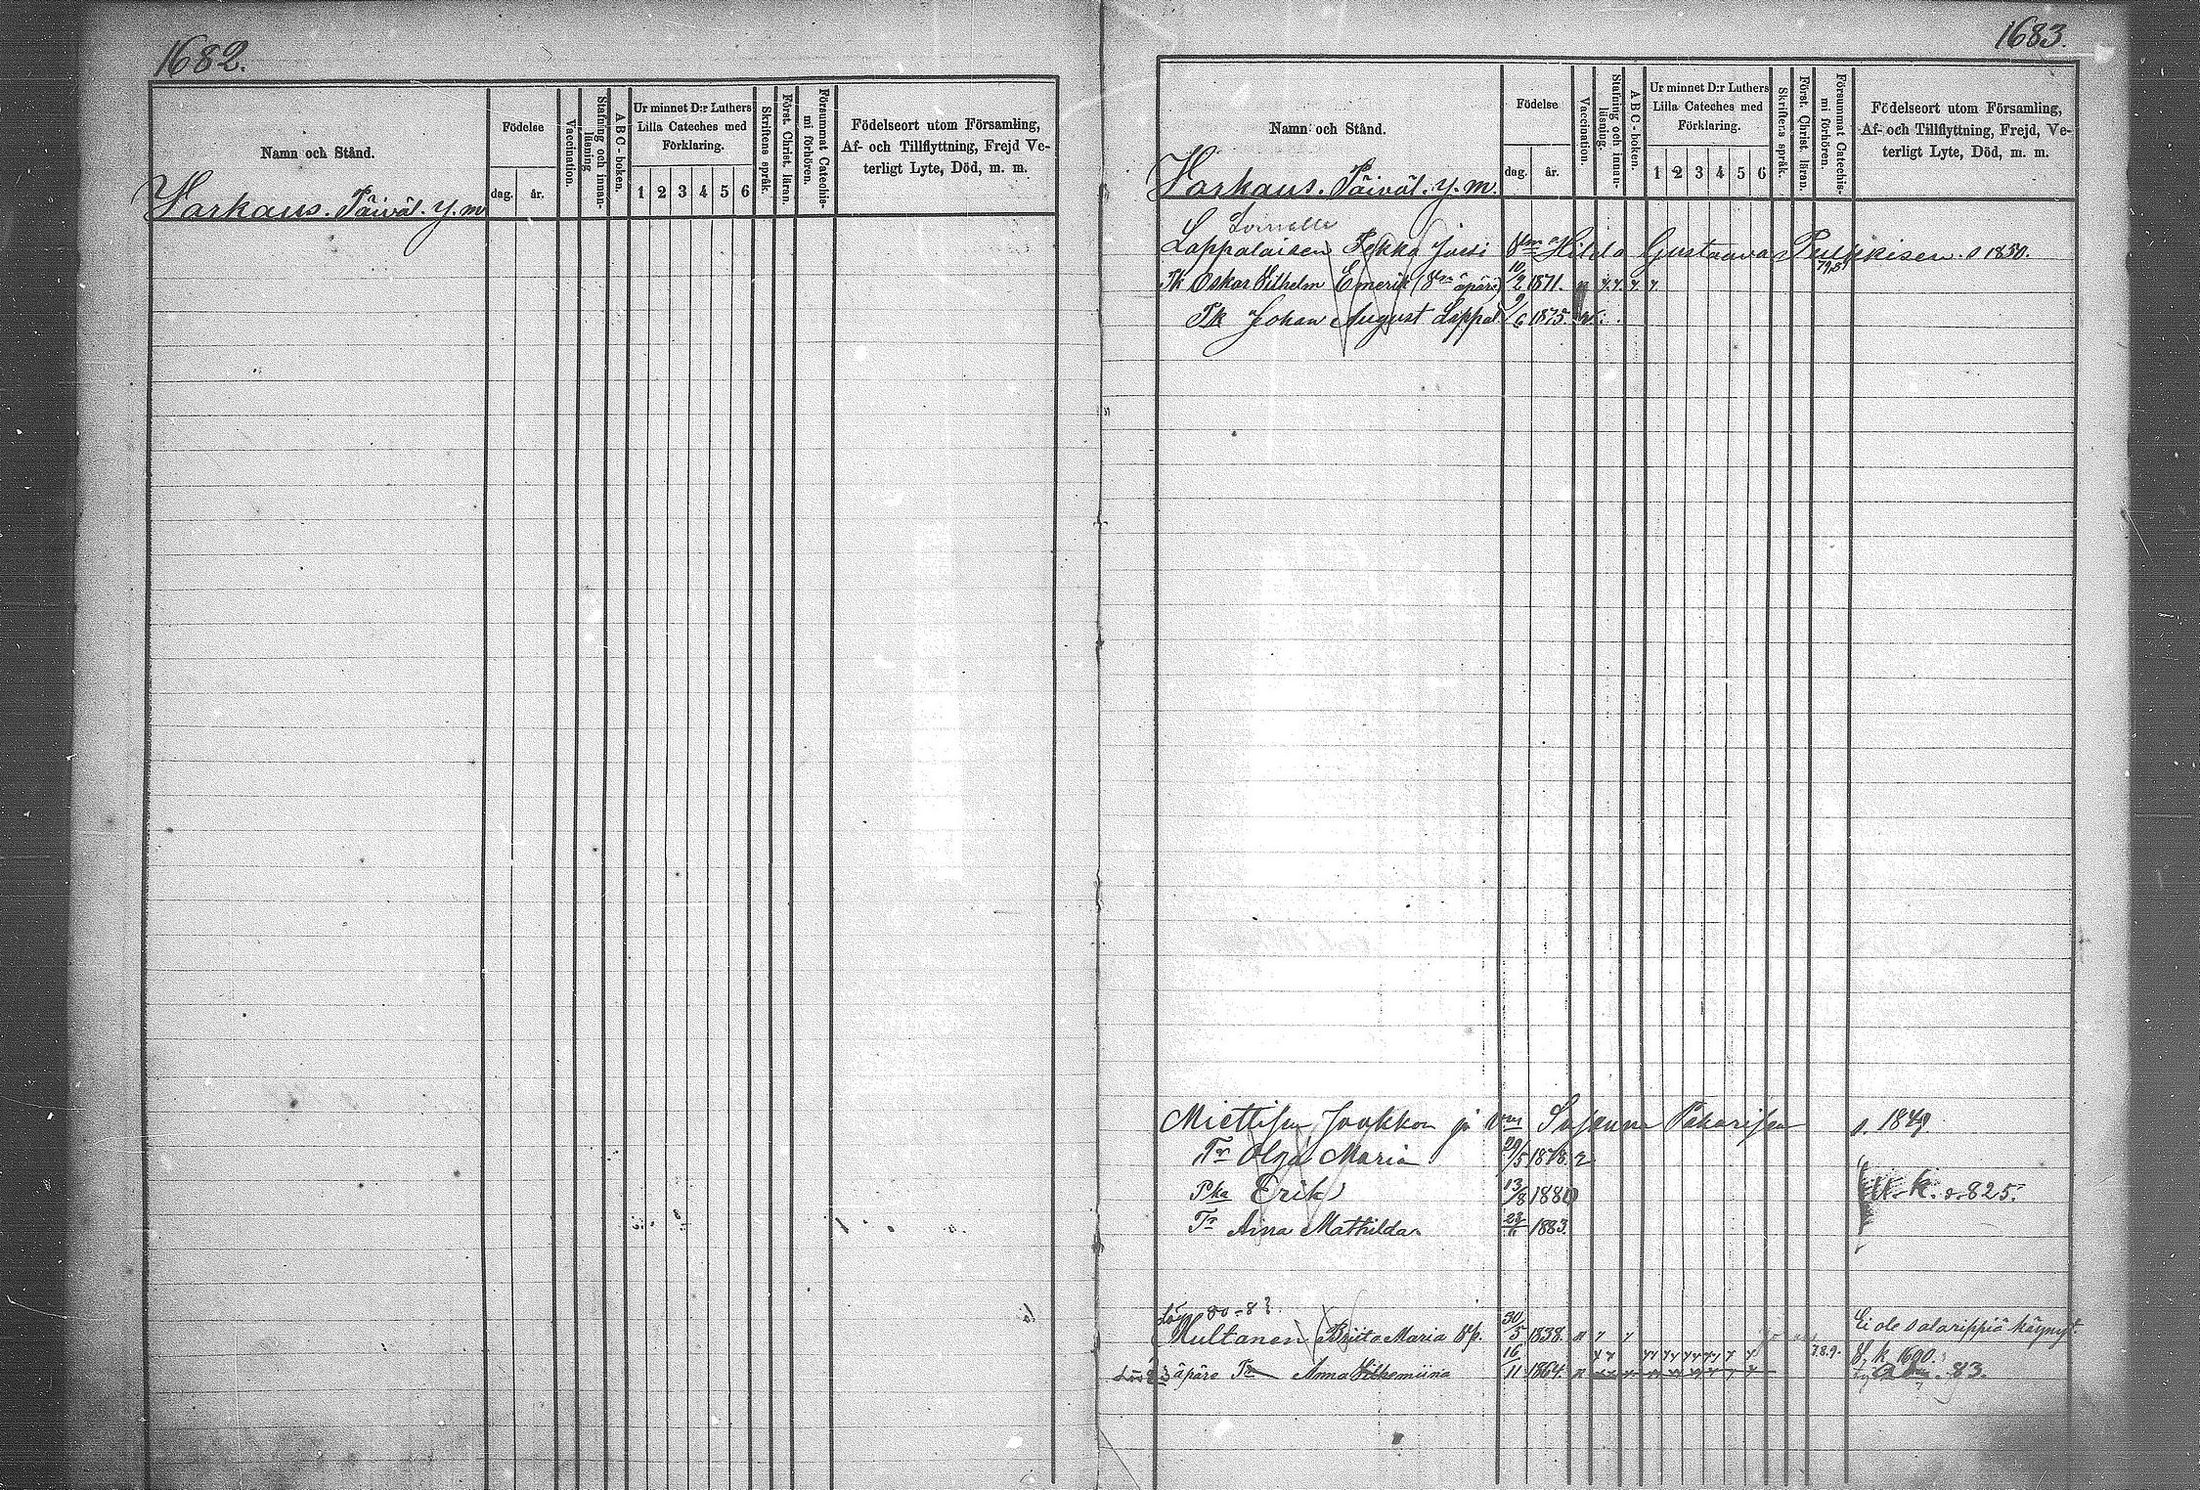 1682.
Namn och Stånd.
Födelse
dag.
år.
Vaccination.
Stafning och innan-
läsning
A B C - boken.
Ur minnet D:r Luthers
Lilla Cateches med
Förklaring.
1 2 3 4 5 6
Skriftens språk.
Först. Christ. läran.
Försummat Catechis-
mi förhören.
Födelseort utom Församling,
Af- och Tillflyttning, Frejd Ve-
terligt Lyte, Död, m. m.
Warkaus. Päiväl. y. m.
1683.
Namn och Stånd.
Födelse
dag.
år.
Vaccination.
Stafning och innan-
läsning.
A B C - boken.
Ur minnet D:r Luthers
Lilla Cateches med
Förklaring.
1 2 3 4 5 6
Skriftens språk.
Först. Christ. läran.
Försummat Catechis-
mi förhören.
Födelseort utom Församling,
Af- och Tillflyttning, Frejd, Ve-
terligt Lyte, Död, m. m.
Warkaus. Päiväl. y. m.
Lappalaisen Pekka Jussi Hilda Gustaava Pulkkisen. s 1850.
Pk Oskar Vilhelm Emerik 10/2 1871.
Pk Johan August Lappal. 9/6 1875.
Miettisen Jaakkon ja Susanna Pakarisen s. 1849
Tr Olga Maria 29/5 1878.
Pka Erik 13/8 1880
s. 825.
Tr Anna Mathilda. 1883.
80-83.
Hultanen Briita Maria 30/5 1838. Ei ole salarippiä käynyt.
äpäre Tr Anna Vilhemiina 16/11 1864. 7.8.9. k 1600.
83.